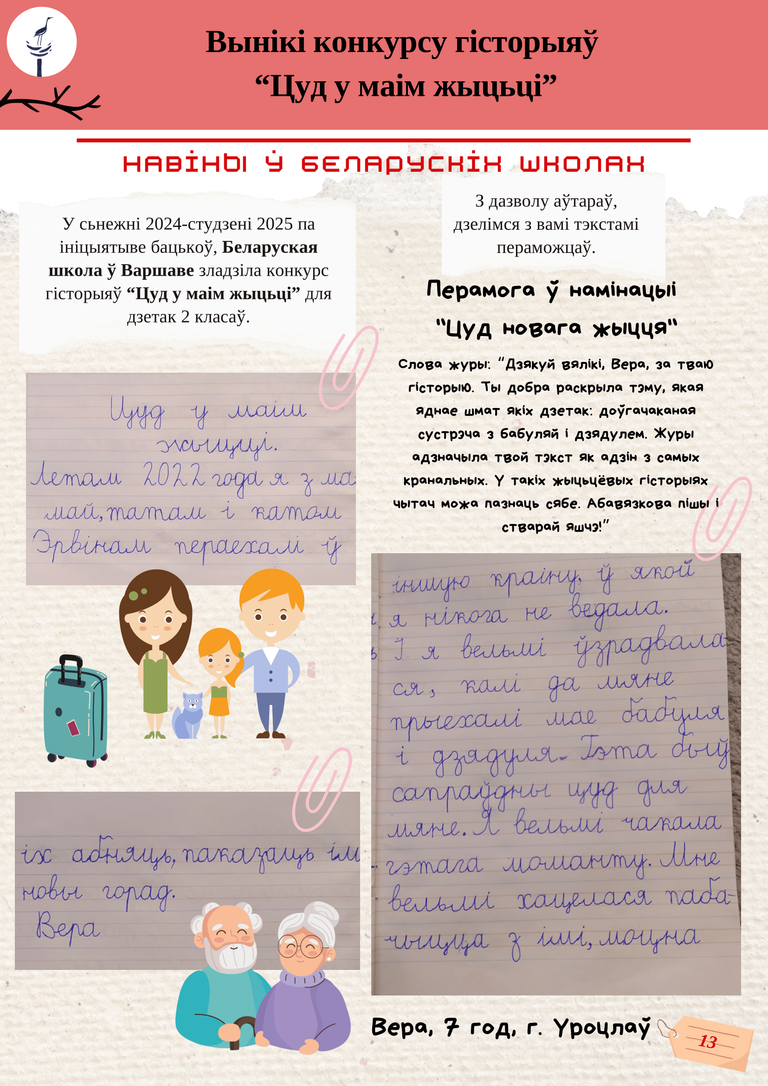 Вынікі конкурсу гісторыяў
“Цуд у маім жыцьці”
НАВІНЫ Ў БЕЛАРУСКІХ ШКОЛАХ
У сьнежні 2024-студзені 2025 па
ініцыятыве бацькоў, Беларуская
школа ў Варшаве зладзіла конкурс
гісторыяў “Цуд у маім жыцьці” для
дзетак 2 класаў.
Цуд у маім
жыцці.
Летам 2022 года я з ма
май, татам і катом
Эрвінам пераехалі ў
З дазволу аўтараў,
дзелімся з вамі тэкстамі
пераможцаў.
Перамога ў намінацыі
"Цуд новага жыцця"
Слова журы: “Дзякуй вялікі, Вера, за тваю
гісторыю. Ты добра раскрыла тэму, якая
яднае шмат якіх дзетак: доўгачаканая
сустрэча з бабуляй і дзядулем. Журы
адзначыла твой тэкст як адзін з самых
кранальных. У такіх жыцьцёвых гісторыях
чытач можа пазнаць сябе. Абавязкова пішы і
ствaрай яшчэ!”
іншую краіну, ў якой
я нікога не ведала.
І я вельмі ўзрадвала
ся, калі да мяне
прыехалі мае бабуля
і дзядуля. Гэта быў
сапраўдны цуд для
мяне. Я вельмі чакала
гэтага моманту. Мне
вельмі хацелася паба-
чыцца з імі, моцна
іх абняць, паказаць ім
новы горад.
Вера
Вера, 7 год, г. Уроцлаў
13